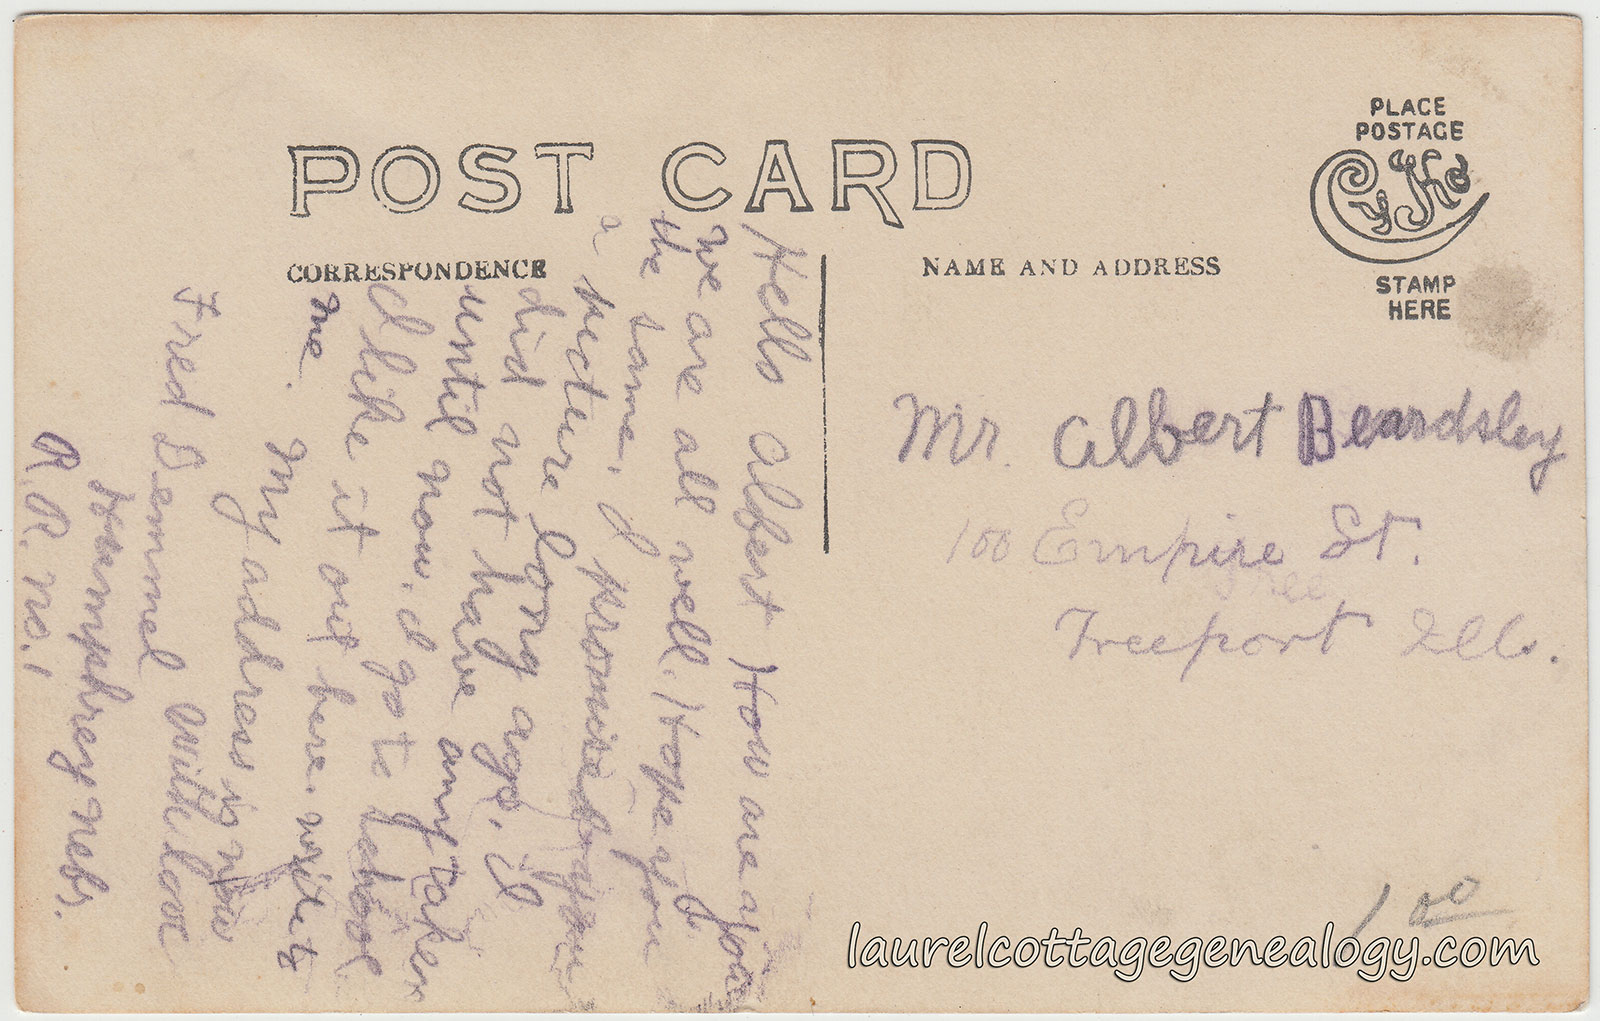 POST CARD
CORRESPONDENCE
NAME AND ADDRESS
PLACE
POSTAGE
CYKO
STAMP
HERE
Hello Albert How are you
we are all well. Hope you
the same. I promised you
a picture long ago, I
did not have any taken
until now. I go to school
I like it out here. write to
me.
My address is now
Fred Demmel with love
Humphrey Nebr.
R.R. no. 1
Mr. Albert Beardsley
100 Empire St.
Freeport Ills.
1 00
laurelcottagegenealogy.com